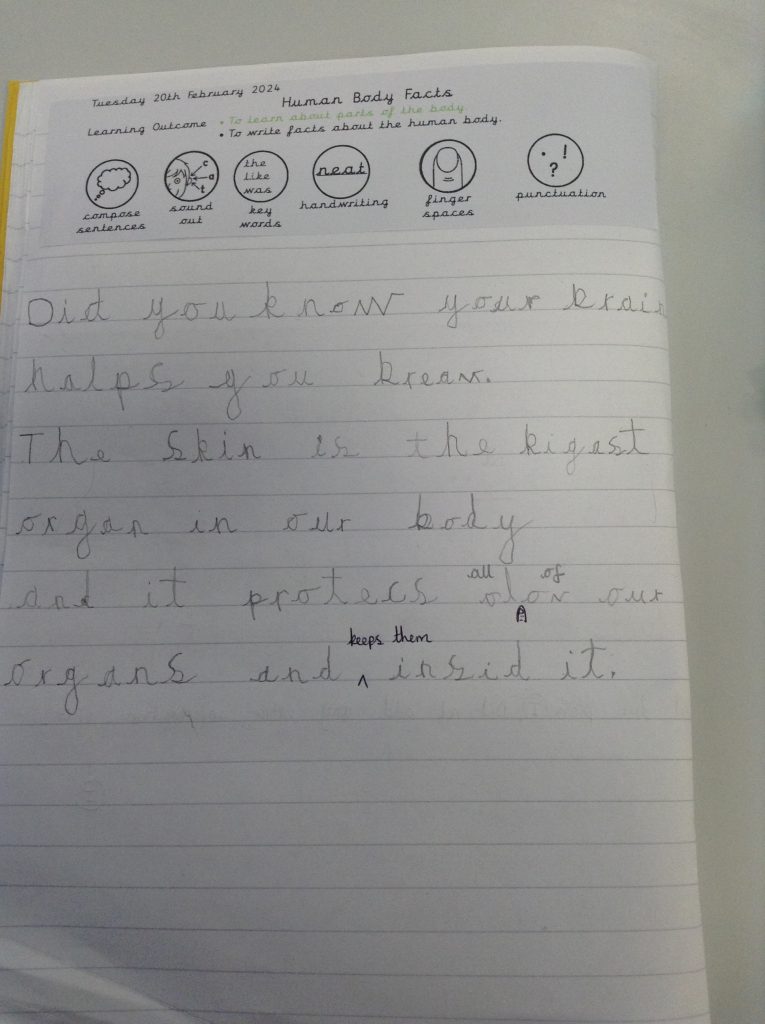 Tuesday 20th February 2024
Human Body Facts
Learning Outcome
• To learn about parts of the body.
• To write facts about the human body.
c
a
t
the
like
was
neat
. !
?
compose
sentences
sound
out
key
words
handwriting
finger
spaces
punctuation
Did you know your brain
halps you bream.
The skin is the bigast
organ in our body
all of
and it protecs olov our
keeps them
organs and ^ insid it.